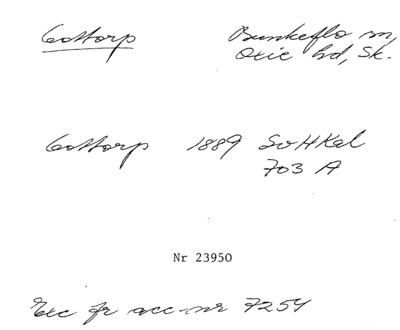 Gottorp Bunkeflo sn,
Oxie hd, Sk.
Gottorp 1889 SvHKal
703 A
Nr 23950
Exc fr acc.nr 7254